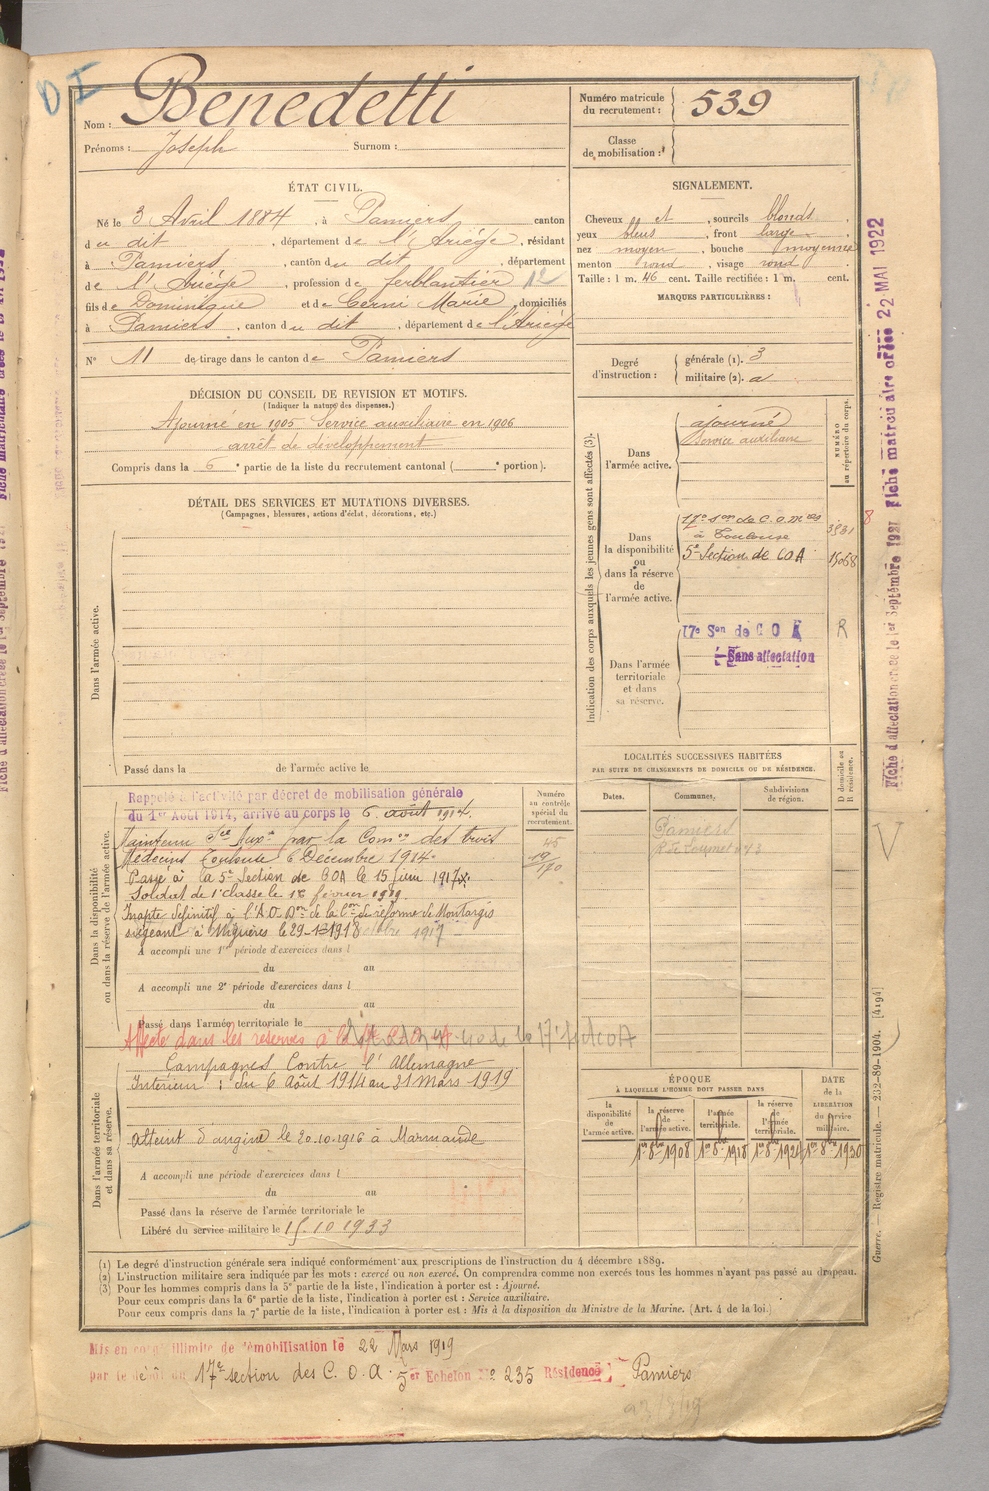 Nom : Benedetti
Prénoms : Joseph Surnom :
Numéro matricule du recrutement : 539
Classe de mobilisation :
ÉTAT CIVIL.
Né le 3 Avril 1884, à Pamiers canton
du dit, département de l'Ariège, résidant
à Pamiers, canton du dit, département
de l'Ariège, profession de ferblantier
fils de Dominique et de Cerni Marie, domiciliés
à Pamiers, canton du dit, département de l'Ariège
N° 11 de tirage dans le canton de Pamiers
SIGNALEMENT.
Cheveux et, sourcils blonds,
yeux bleus, front large,
nez moyen, bouche moyenne
menton rond, visage rond
Taille : 1 m. 46 cent. Taille rectifiée : 1 m. cent.
MARQUES PARTICULIÈRES :
Degré d'instruction :
générale (1). 3
militaire (2). a
DÉCISION DU CONSEIL DE REVISION ET MOTIFS.
(Indiquer la nature des dispenses.)
Ajourné en 1905 Service auxiliaire en 1906
arrêt de développement
Compris dans la 6e partie de la liste du recrutement cantonal ( e portion).
DÉTAIL DES SERVICES ET MUTATIONS DIVERSES.
(Campagnes, blessures, actions d'éclat, décorations, etc.)
Dans l'armée active.
Passé dans la de l'armée active le
Indication des corps auxquels les jeunes gens sont affectés (3).
NUMÉRO au répertoire du corps.
Dans l'armée active.
ajourné
Service auxiliaire
Dans la disponibilité ou dans la réserve de l'armée active.
17e Son de C.O.
à Toulouse
5e Section de COA 15068
Dans l'armée territoriale et dans sa réserve.
17e Son de C O A R
Sans affectation
LOCALITÉS SUCCESSIVES HABITÉES
PAR SUITE DE CHANGEMENTS DE DOMICILE OU DE RÉSIDENCE.
Dates. Communes. Subdivisions de région. D domicile ou R résidence.
Pamiers
Numéro au contrôle spécial du recrutement.
Dans la disponibilité ou dans la réserve de l'armée active.
Rappelé à l'activité par décret de mobilisation générale
du 1er Août 1914, arrivé au corps le 6 août 1914.
Maintenu Sce Auxre par la Comon des trois
Médecins Toulouse 6 Décembre 1914.
Passé à la 5e Section de COA le 15 juin 1917
Soldat de 1e classe le 1er février 1919
Inapte définitif à l'A.O. Don de la Con de réforme de Montargis
siégeant à Mignères le 29-1-1918
A accompli une 1re période d'exercices dans l
du au
A accompli une 2e période d'exercices dans l
du au
Passé dans l'armée territoriale le
Affecté dans les réserves à la
Dans l'armée territoriale et dans sa réserve.
Campagnes Contre l'Allemagne
Intérieur : du 6 Août 1914 au 21 Mars 1919
Atteint d'angine le 20.10.1916 à Marmande
A accompli une période d'exercices dans l
du au
Passé dans la réserve de l'armée territoriale le
Libéré du service militaire le 15.10 1933
ÉPOQUE
À LAQUELLE L'HOMME DOIT PASSER DANS
DATE de la LIBÉRATION du service militaire.
la disponibilité de l'armée active.
la réserve de l'armée active.
l'armée territoriale.
la réserve de l'armée territoriale.
1er 8bre 1908 1er 8bre 1918 1er 8bre 1924 1er 8bre 1930
(1) Le degré d'instruction générale sera indiqué conformément aux prescriptions de l'instruction du 4 décembre 1889.
(2) L'instruction militaire sera indiquée par les mots : exercé ou non exercé. On comprendra comme non exercés tous les hommes n'ayant pas passé au drapeau.
(3) Pour les hommes compris dans la 5e partie de la liste, l'indication à porter est : Ajourné.
Pour ceux compris dans la 6e partie de la liste, l'indication à porter est : Service auxiliaire.
Pour ceux compris dans la 7e partie de la liste, l'indication à porter est : Mis à la disposition du Ministre de la Marine. (Art. 4 de la loi.)
Mis en congé illimité de démobilisation le 22 Mars 1919
par le dépôt du 17e section des C.O.A. 5er Echelon N° 235 Résidence Pamiers
Fiche d'affectation créée le 1er Septembre 1927 Fiche matriculaire créée 22 MAI 1922
Guerre. — Registre matricule. — 232-89-1904. [4194]